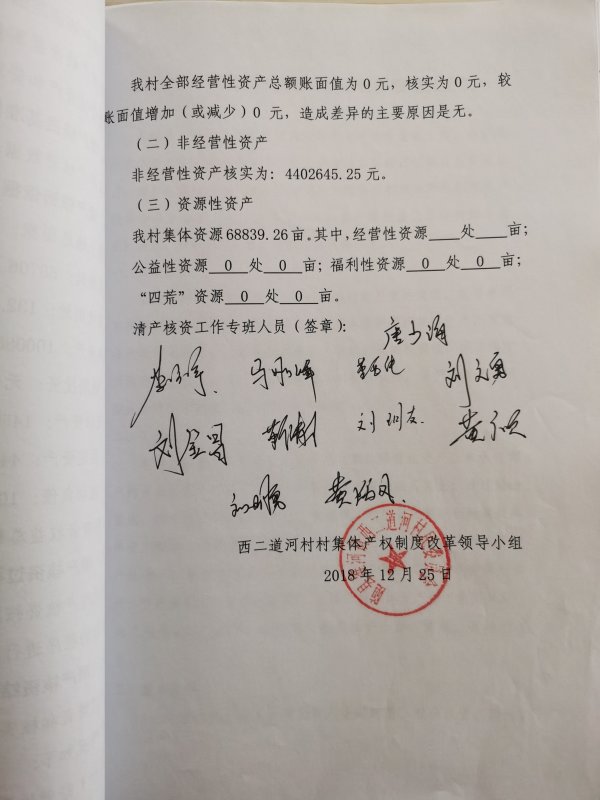 我村全部经营性资产总额账面值为0元，核实为0元，较
账面值增加（或减少）0 元，造成差异的主要原因是无。
（二）非经营性资产
非经营性资产核实为：4402645.25元。
（三）资源性资产
我村集体资源68839.26亩。其中，经营性资源____处____亩；
公益性资源__0__处__0__亩；福利性资源__0__处__0__亩；
“四荒”资源__0__处__0__亩。
清产核资工作专班人员（签章）：
刘文勇
刘金昌
西二道河村村集体产权制度改革领导小组
2018年12月25日